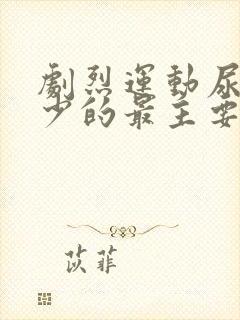 劇烈運動尿
少的最主要
苡菲